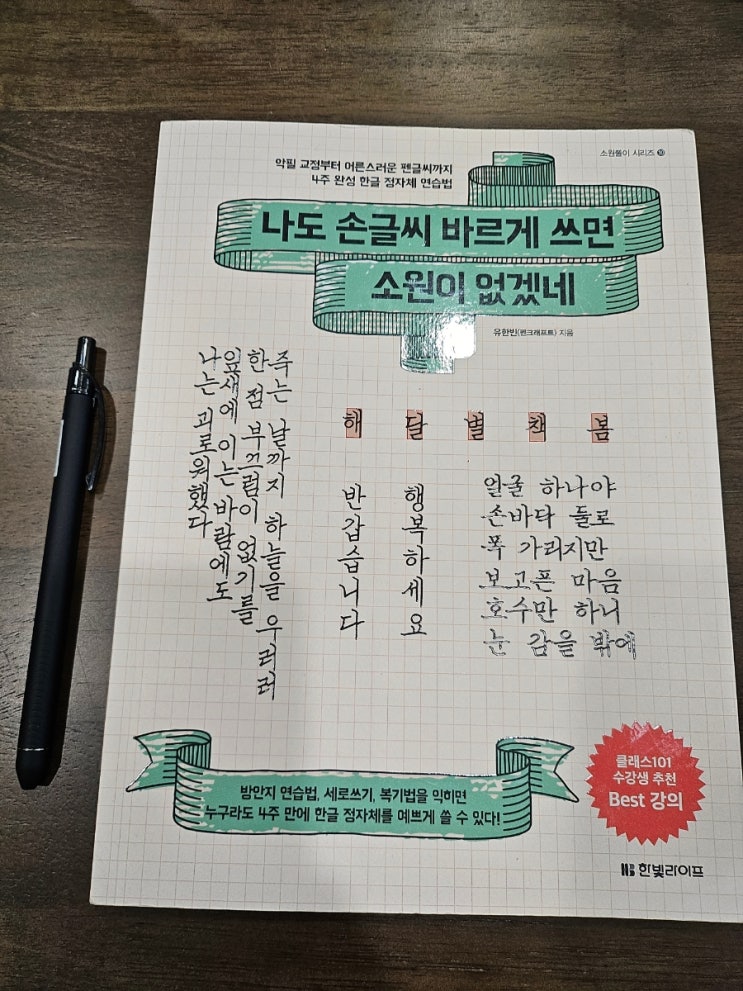 소원풀이 시리즈 10
악필 교정부터 어른스러운 펜글씨까지
4주 완성 한글 정자체 연습법
나도 손글씨 바르게 쓰면
소원이 없겠네
유한빈(펜크래프트) 지음
죽는 날까지 하늘을 우러러
한 점 부끄럼이 없기를
잎새에 이는 바람에도
나는 괴로워했다
해 달 별 책 봄
반갑습니다
행복하세요
얼굴 하나야
손바닥 둘로
폭 가리지만
보고픈 마음
호수만 하니
눈 감을 밖에
방안지 연습법, 세로쓰기, 복기법을 익히면
누구라도 4주 만에 한글 정자체를 예쁘게 쓸 수 있다!
클래스101
수강생 추천
Best 강의
HB 한빛라이프